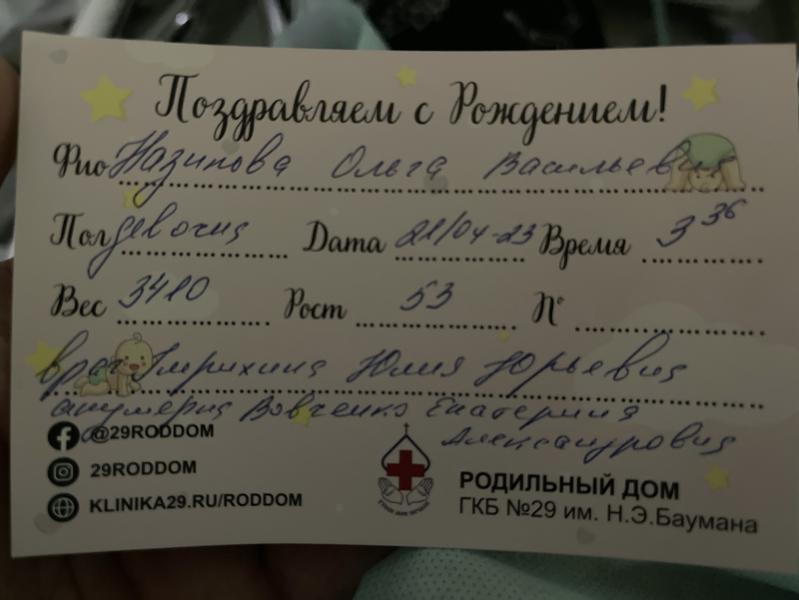 Поздравляем с Рождением!
Фио Назипова Ольга Васильевна
Пол девочка Дата 21/04-23 Время 3 36
Вес 3410 Рост 53 №
врач Юлия Юрьевна
акушерка Вовченко Екатерина
Александровна
@29RODDOM
29RODDOM
KLINIKA29.RU/RODDOM
РОДИЛЬНЫЙ ДОМ
ГКБ №29 им. Н.Э.Баумана